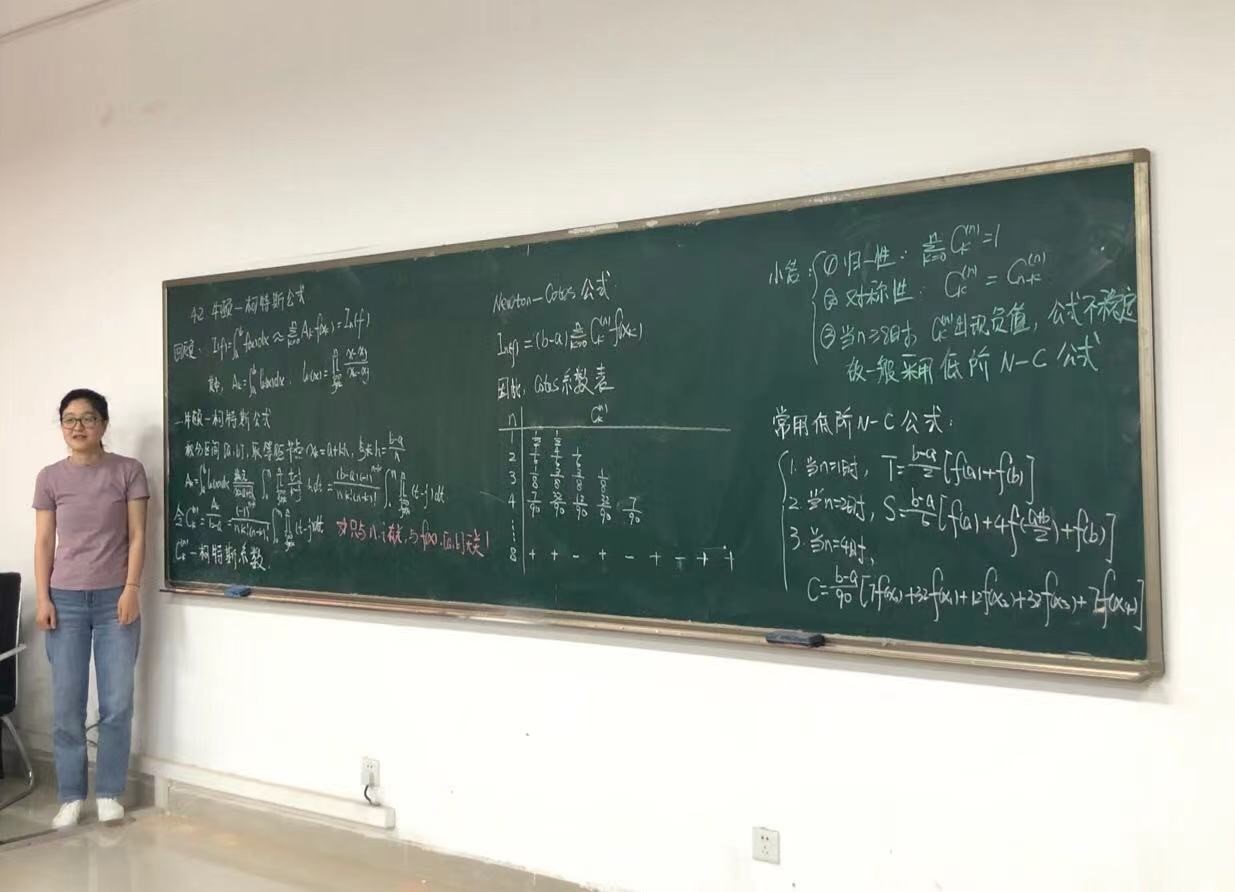 4.2 牛顿-柯特斯公式
回顾: I(f)=∫_a^b f(x)dx≈∑_{k=0}^n A_k f(x_k)=I_n(f)
其中, A_k=∫_a^b l_k(x)dx, l_k(x)=∏ (x-x_j)/(x_k-x_j)
一.牛顿-柯特斯公式
积分区间[a,b], 取等距节点 x_k=a+kh, 步长h=(b-a)/n
A_k=∫_a^b l_k(x)dx
令C_k^{(n)}=A_k/(b-a)=(-1)^{n-k}/(n·k!(n-k)!)∫_0^n ∏(t-j)dt
对只与n, 有关, 与f(x), [a,b]无关!
C_k^{(n)}-柯特斯系数.
Newton-Cotes公式:
I_n(f)=(b-a)∑_{k=0}^n C_k^{(n)} f(x_k)
因此, Cotes系数表
n C_k^{(n)}
1 1/2 1/2
2 1/6 4/6 1/6
3 1/8 3/8 3/8 1/8
4 7/90 32/90 12/90 32/90 7/90
8 + + - + - + - + +
小结: ①归一性: ∑_{k=0}^n C_k^{(n)}=1
②对称性: C_k^{(n)}=C_{n-k}^{(n)}
③当n≥8时, C_k^{(n)}出现负值, 公式不稳定
故一般采用低阶N-C公式
常用低阶N-C公式:
1.当n=1时, T=(b-a)/2[f(a)+f(b)]
2.当n=2时, S=(b-a)/6[f(a)+4f((a+b)/2)+f(b)]
3.当n=4时,
C=(b-a)/90[7f(x_0)+32f(x_1)+12f(x_2)+32f(x_3)+7f(x_4)]